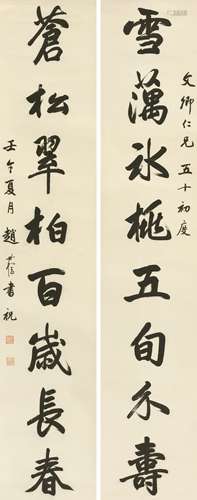 文卿仁兄五十初度
雪藕冰桃五旬介壽
蒼松翠柏百歲長春
壬午夏月趙世駿書祝